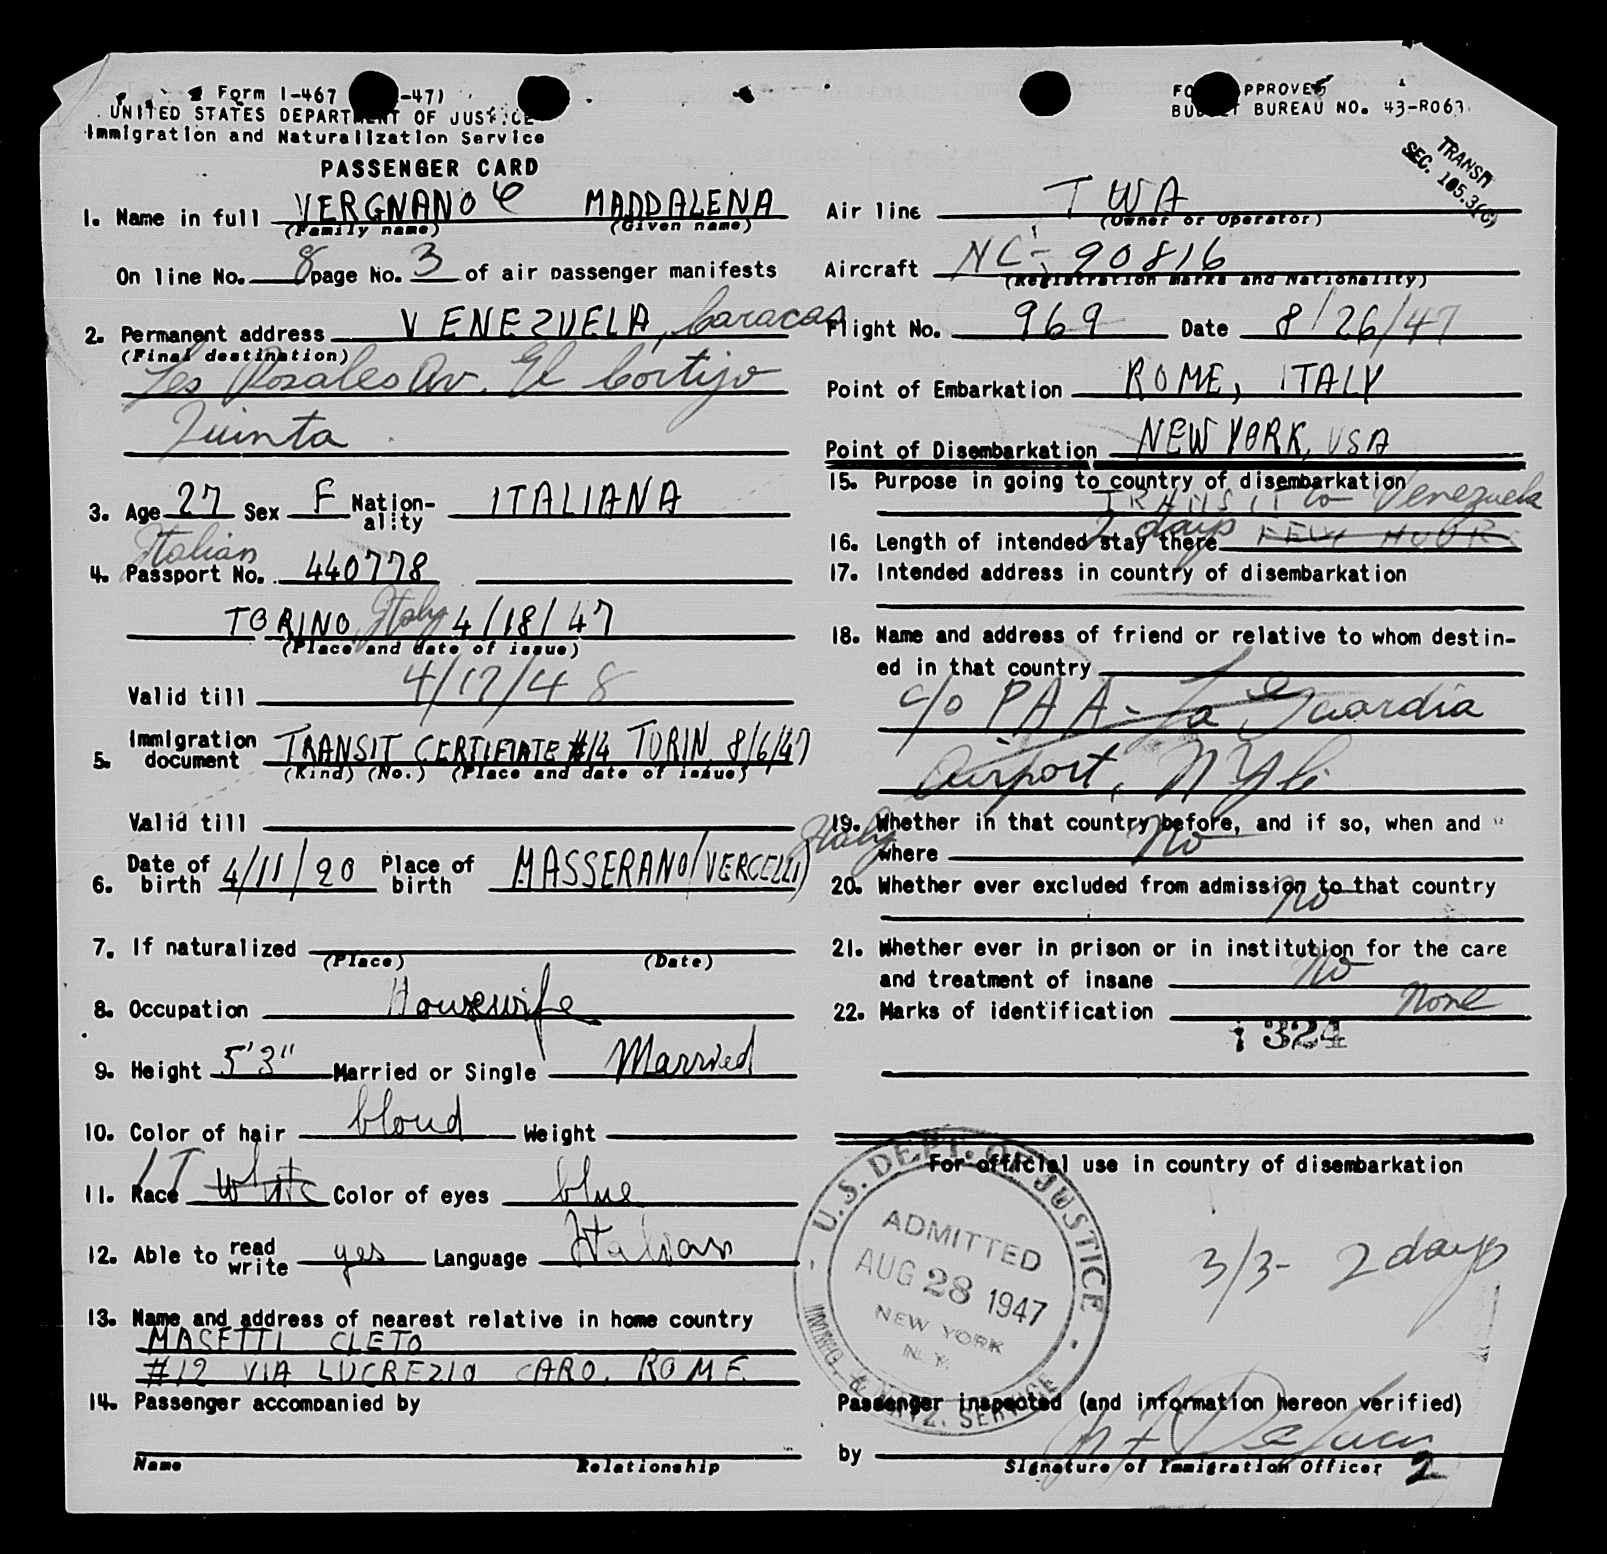 Form I-467 -47)
UNITED STATES DEPARTMENT OF JUSTICE
Immigration and Naturalization Service
PASSENGER CARD
1. Name in full VERGNANO MADDALENA
(Family name) (Given name)
On line No. 8 page No. 3 of air passenger manifests
2. Permanent address VENEZUELA, Caracas
(Final destination)
Les Rosales Av. El Cortijo
Quinta
3. Age 27 Sex F Nation-ality ITALIANA
Italian
4. Passport No. 440778
TORINO Italy 4/18/47
(Place and date of issue)
Valid till 4/17/48
5. Immigration document TRANSIT CERTIFIATE #14 TURIN 8/6/47
(Kind) (No.) (Place and date of issue)
Valid till
6. Date of birth 4/11/20 Place of birth MASSERANO (VERCELLI) Italy
7. If naturalized
(Place) (Date)
8. Occupation Housewife
9. Height 5'3" Married or Single Married
10. Color of hair blond Weight
11. Race IT White Color of eyes blue
12. Able to read write yes Language Italian
13. Name and address of nearest relative in home country
MASETTI CLETO
#12 VIA LUCREZIO CARO. ROME
14. Passenger accompanied by
Name Relationship
FORM APPROVED
BUDGET BUREAU NO. 43-R063.
TRANSIT
SEC. 105.3(C)
Air line TWA
(Owner or Operator)
Aircraft NC-90816
(Registration marks and Nationality)
Flight No. 969 Date 8/26/47
Point of Embarkation ROME, ITALY
Point of Disembarkation NEW YORK, USA
15. Purpose in going to country of disembarkation
TRANSIT to Venezuela
16. Length of intended stay there 2 days FEW HOURS
17. Intended address in country of disembarkation
18. Name and address of friend or relative to whom destin-
ed in that country
c/o PAA - La Guardia
Airport, NY
19. Whether in that country before, and if so, when and
where No
20. Whether ever excluded from admission to that country
No
21. Whether ever in prison or in institution for the care
and treatment of insane No
22. Marks of identification None
324
For official use in country of disembarkation
U.S. DEPT. OF JUSTICE
ADMITTED
AUG 28 1947
NEW YORK
N.Y.
IMMIG. & NATZ. SERVICE
3/3- 2 days
Passenger inspected (and information hereon verified)
by
Signature of Immigration Officer
2